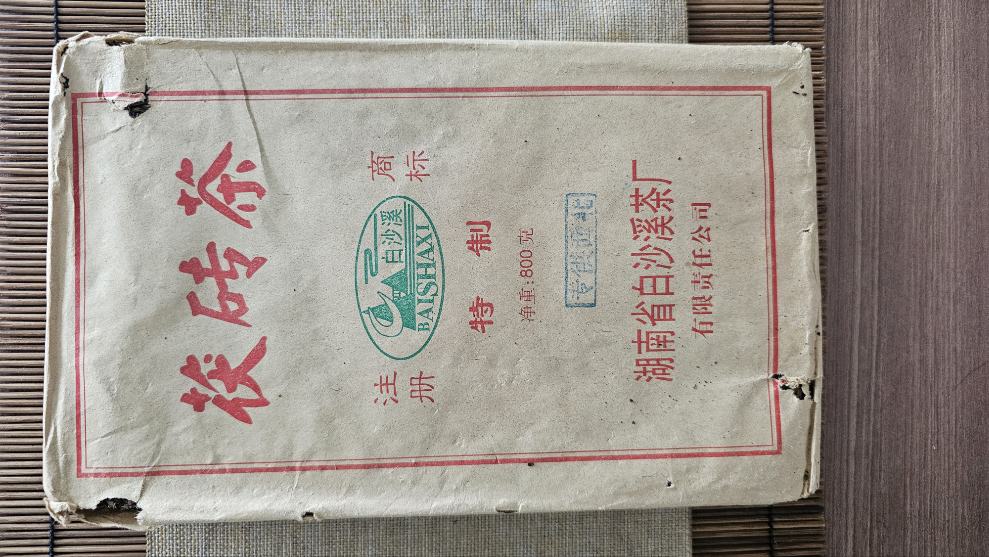 茯砖茶
注册
商标
白沙溪
BAISHAXI
特制
净重:800克
专供西北
湖南省白沙溪茶厂
有限责任公司